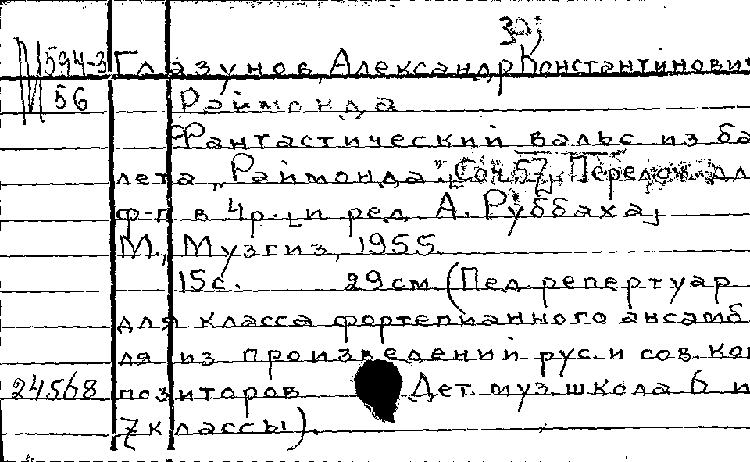 Зэј
М594-3 Глазунов, Александр Константинович
М 56 Раймонда
Фантастический вальс из ба
лета „Раймонда". Соч. 57. Перелож. для
ф-п в 4 р. [и ред. А. Руббаха]
М., Музгиз, 1955.
15с. 29см (Пед. репертуар
для класса фортепианного ансамб
ля из произведений рус. и сов. ком
24568 позиторов Дет. муз. школа 6 и
7 классы).